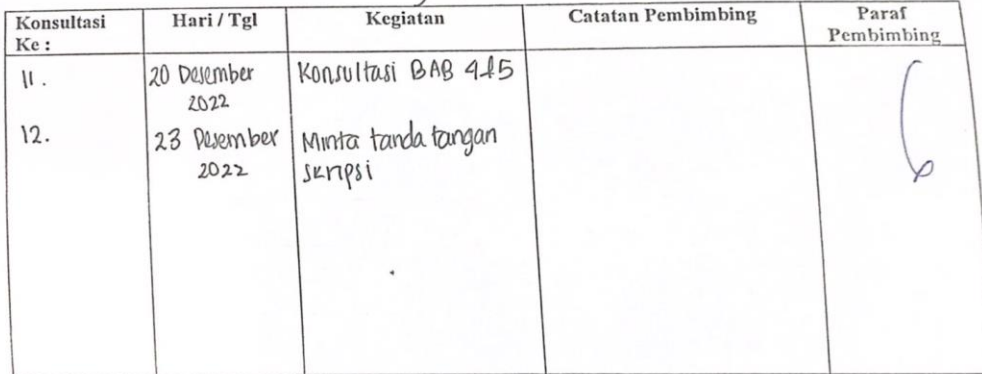 Konsultasi Ke : Hari / Tgl Kegiatan Catatan Pembimbing Paraf Pembimbing
11. 20 Desember 2022 Konsultasi BAB 4&5
12. 23 Desember 2022 Minta tanda tangan skripsi